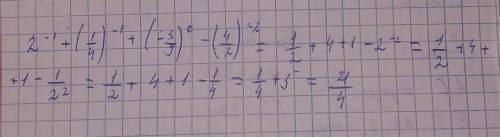 2⁻¹ + (1/4)⁻¹ + (-3/5)⁰ - (4/2)⁻² = 1/2 + 4 + 1 - 2⁻² = 1/2 + 4 +
+ 1 - 1/2² = 1/2 + 4 + 1 - 1/4 = 1/4 + 5 = 21/4